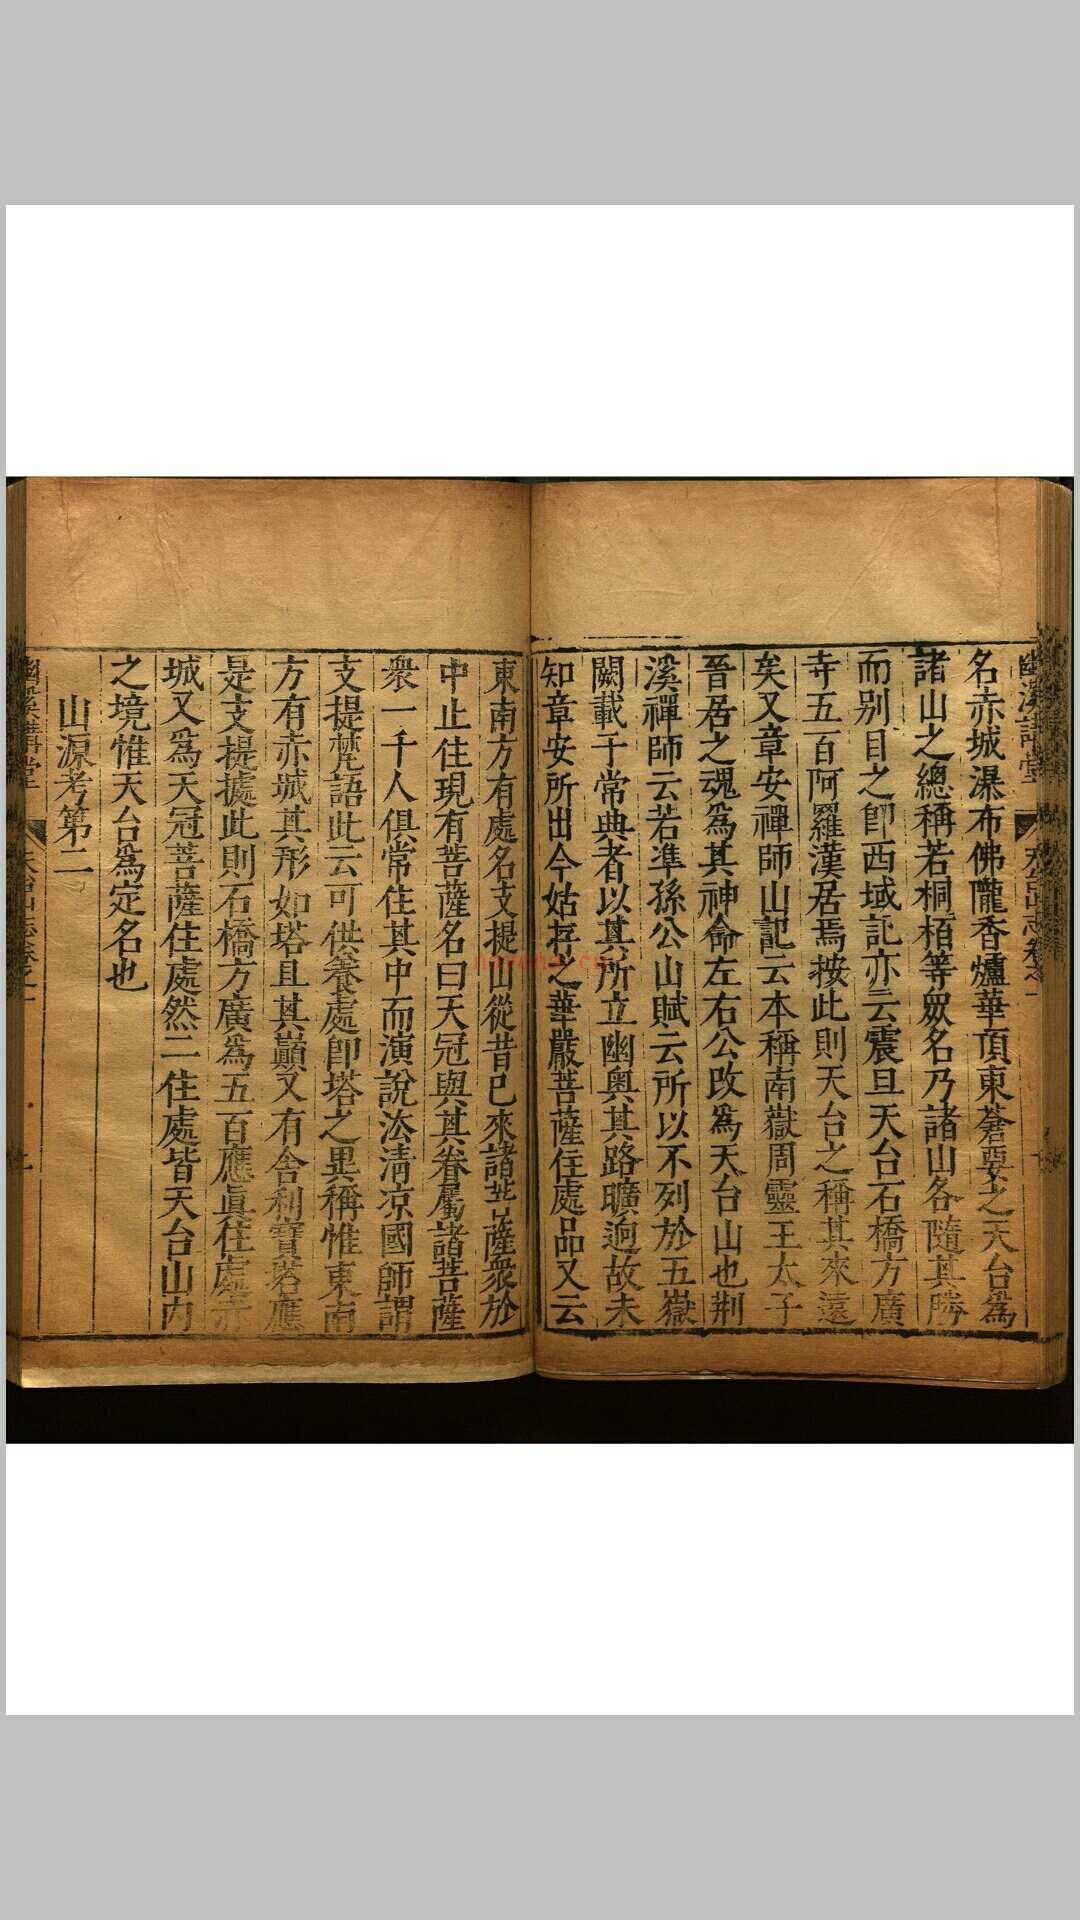 幽溪講堂 天台山志卷之一
名赤城瀑布佛隴香爐華頂東蒼要之天台爲
諸山之總稱若桐栢等衆名乃諸山各隨其勝
而别目之卽西域記亦云震旦天台石橋方廣
寺五百阿羅漢居焉按此則天台之稱其來遠
矣又章安禪師山記云本稱南嶽周靈王太子
晉居之魂爲其神命左右公改爲天台山也荆
溪禪師云若準孫公山賦云所以不列於五嶽
闕載于常典者以其所立幽奥其路曠迥故未
知章安所出今姑存之華嚴菩薩住處品又云
東南方有處名支提山從昔已來諸菩薩衆於
中止住現有菩薩名曰天冠與其眷屬諸菩薩
衆一千人俱常住其中而演說法清凉國師謂
支提梵語此云可供養處卽塔之異稱惟東南
方有赤城其形如塔且其巔又有舍利寶塔應
是支提據此則石橋方廣爲五百應眞住處赤
城又爲天冠菩薩住處然二住處皆天台山内
之境惟天台爲定名也
山源考第二
幽溪講堂 天台山志卷之一
noyona.cn